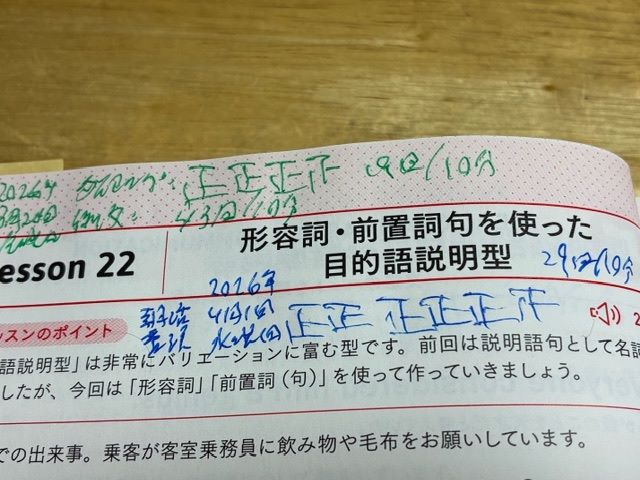 2026年 正正正正 19回/10分
43回/10分
esson 22
形容詞・前置詞句を使った
目的語説明型
29回/10分
2026年
ッスンのポイント
4月1日
水曜日
正正 正正正正
語説明型」は非常にバリエーションに富む型です。前回は説明語句として名詞
したが、今回は「形容詞」「前置詞(句)」を使って作っていきましょう。
での出来事。乗客が客室乗務員に飲み物や毛布をお願いしています。